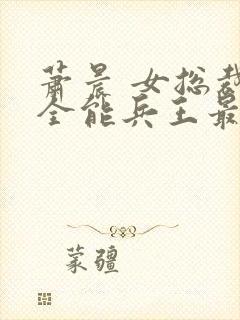 萧晨 女总裁
全能兵王最
蒙疆